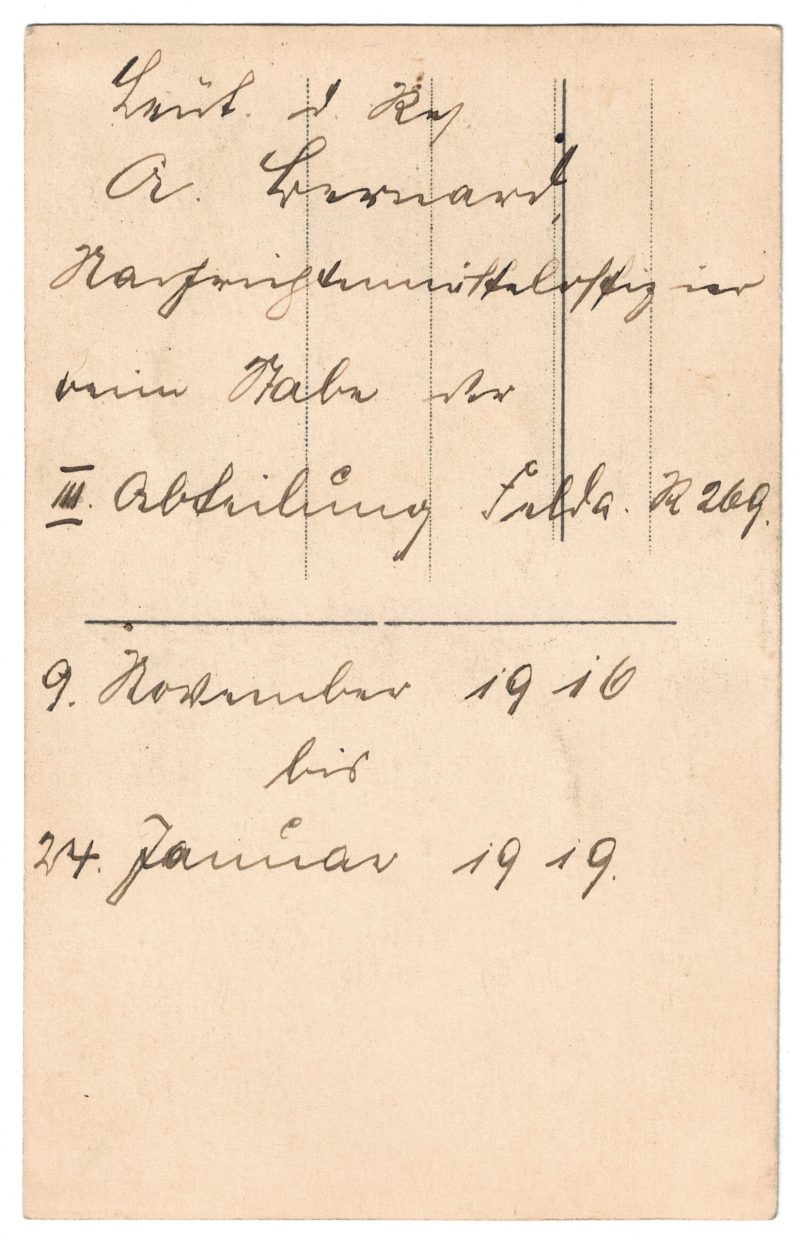 Leut. d. Res
A. Bernard,
Nachrichtenmitteloffizier
beim Stabe der
III. Abteilung Felda. R 269.
9. November 1916
bis
24. Januar 1919.